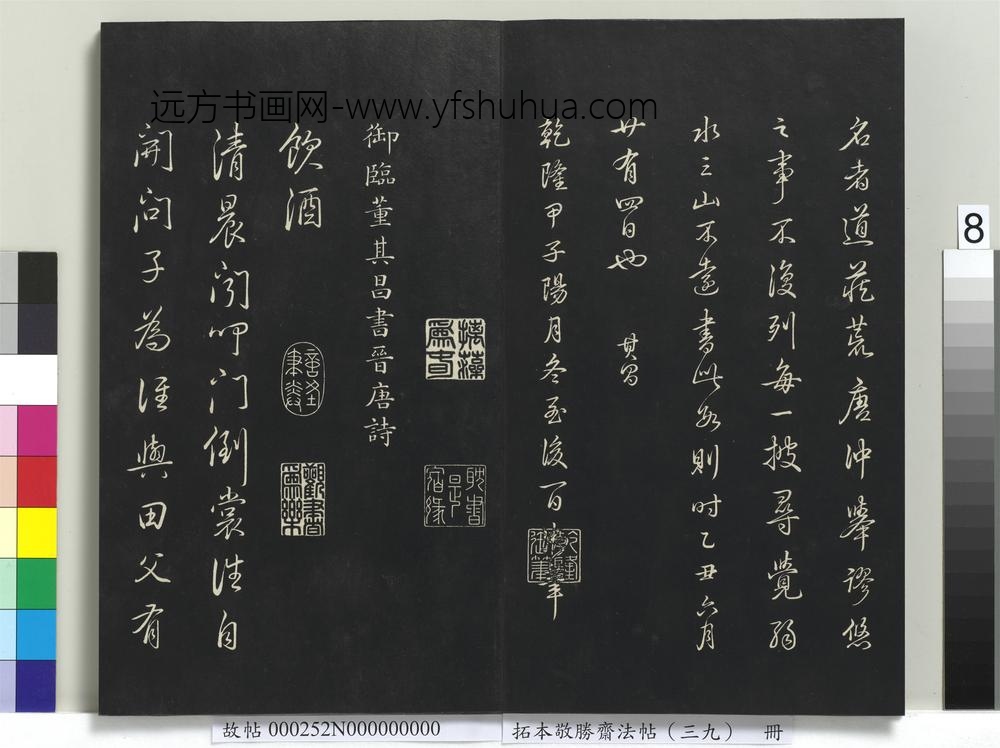 远方书画网-www.yfshuhua.com
名者道藏荒唐沖舉謬悠
之事不復列每一披尋覺弱
水三山不遠書此數則時乙丑六月
廿有四日也 其昌
乾隆甲子陽月冬至後一日御筆
乾隆御筆
摛藻為春
耽書是宿緣
御臨董其昌書晉唐詩
飲酒
觀書為樂
清晨聞叩門倒裳往自
開問子為誰與田父有
8
故帖 000252N000000000
拓本敬勝齋法帖（三九） 冊